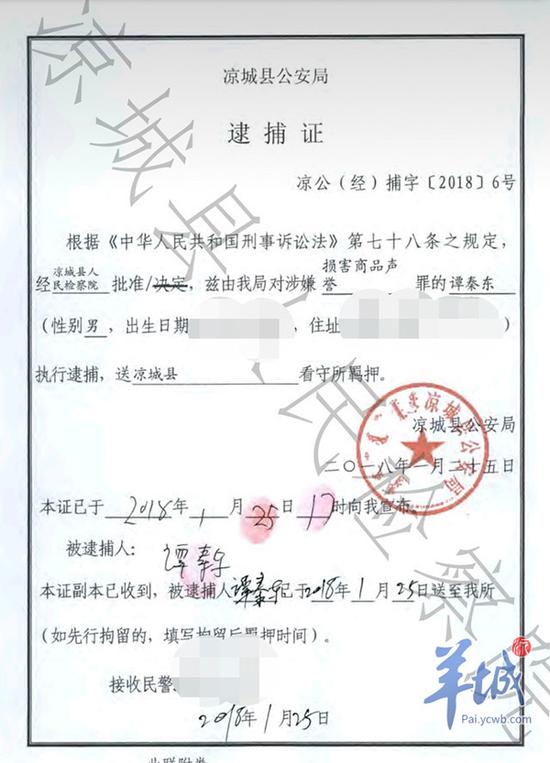 凉城县公安局
逮捕证
凉公（经）捕字〔2018〕6号
根据《中华人民共和国刑事诉讼法》第七十八条之规定，
经凉城县人民检察院批准/决定，兹由我局对涉嫌损害商品声誉罪的谭秦东
（性别男，出生日期，住址）
执行逮捕，送凉城县看守所羁押。
凉城县公安局
凉城县公安局
二〇一八年一月二十五日
本证已于2018年1月25日17时向我宣布。
被逮捕人：谭秦东
本证副本已收到，被逮捕人谭秦东已于2018年1月25日送至我所
（如先行拘留的，填写拘留后羁押时间）。
接收民警
2018年1月25日
羊城
Pai.ycwb.com
凉城县人民检察院